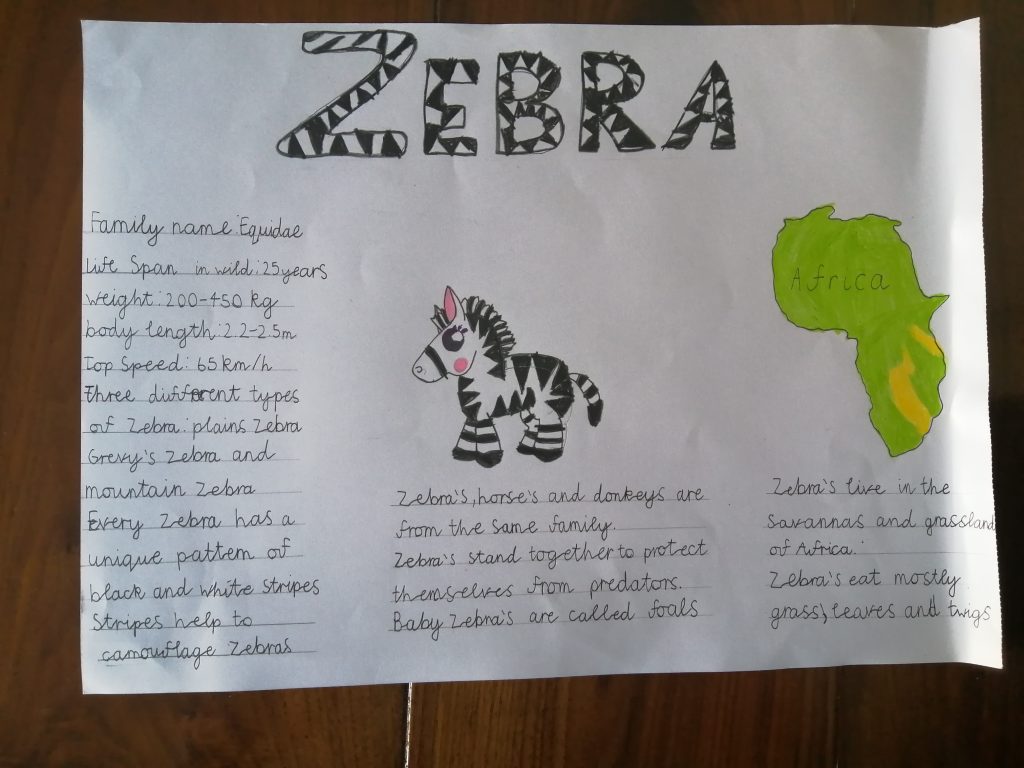 ZEBRA
Family name: Equidae
Life Span in wild: 25 years
weight: 200-450 kg
body length: 2.2-2.5m
Top Speed: 65 km/h
Three different types
of Zebra: plains Zebra
Grevy's Zebra and
mountain Zebra
Every Zebra has a
unique pattern of
black and white Stripes
Stripes help to
camouflage Zebras
Zebra's, horse's and donkeys are
from the same family.
Zebra's stand together to protect
themselves from predators.
Baby Zebra's are called foals
Africa
Zebra's live in the
savannas and grassland
of Africa.
Zebra's eat mostly
grass, leaves and twigs